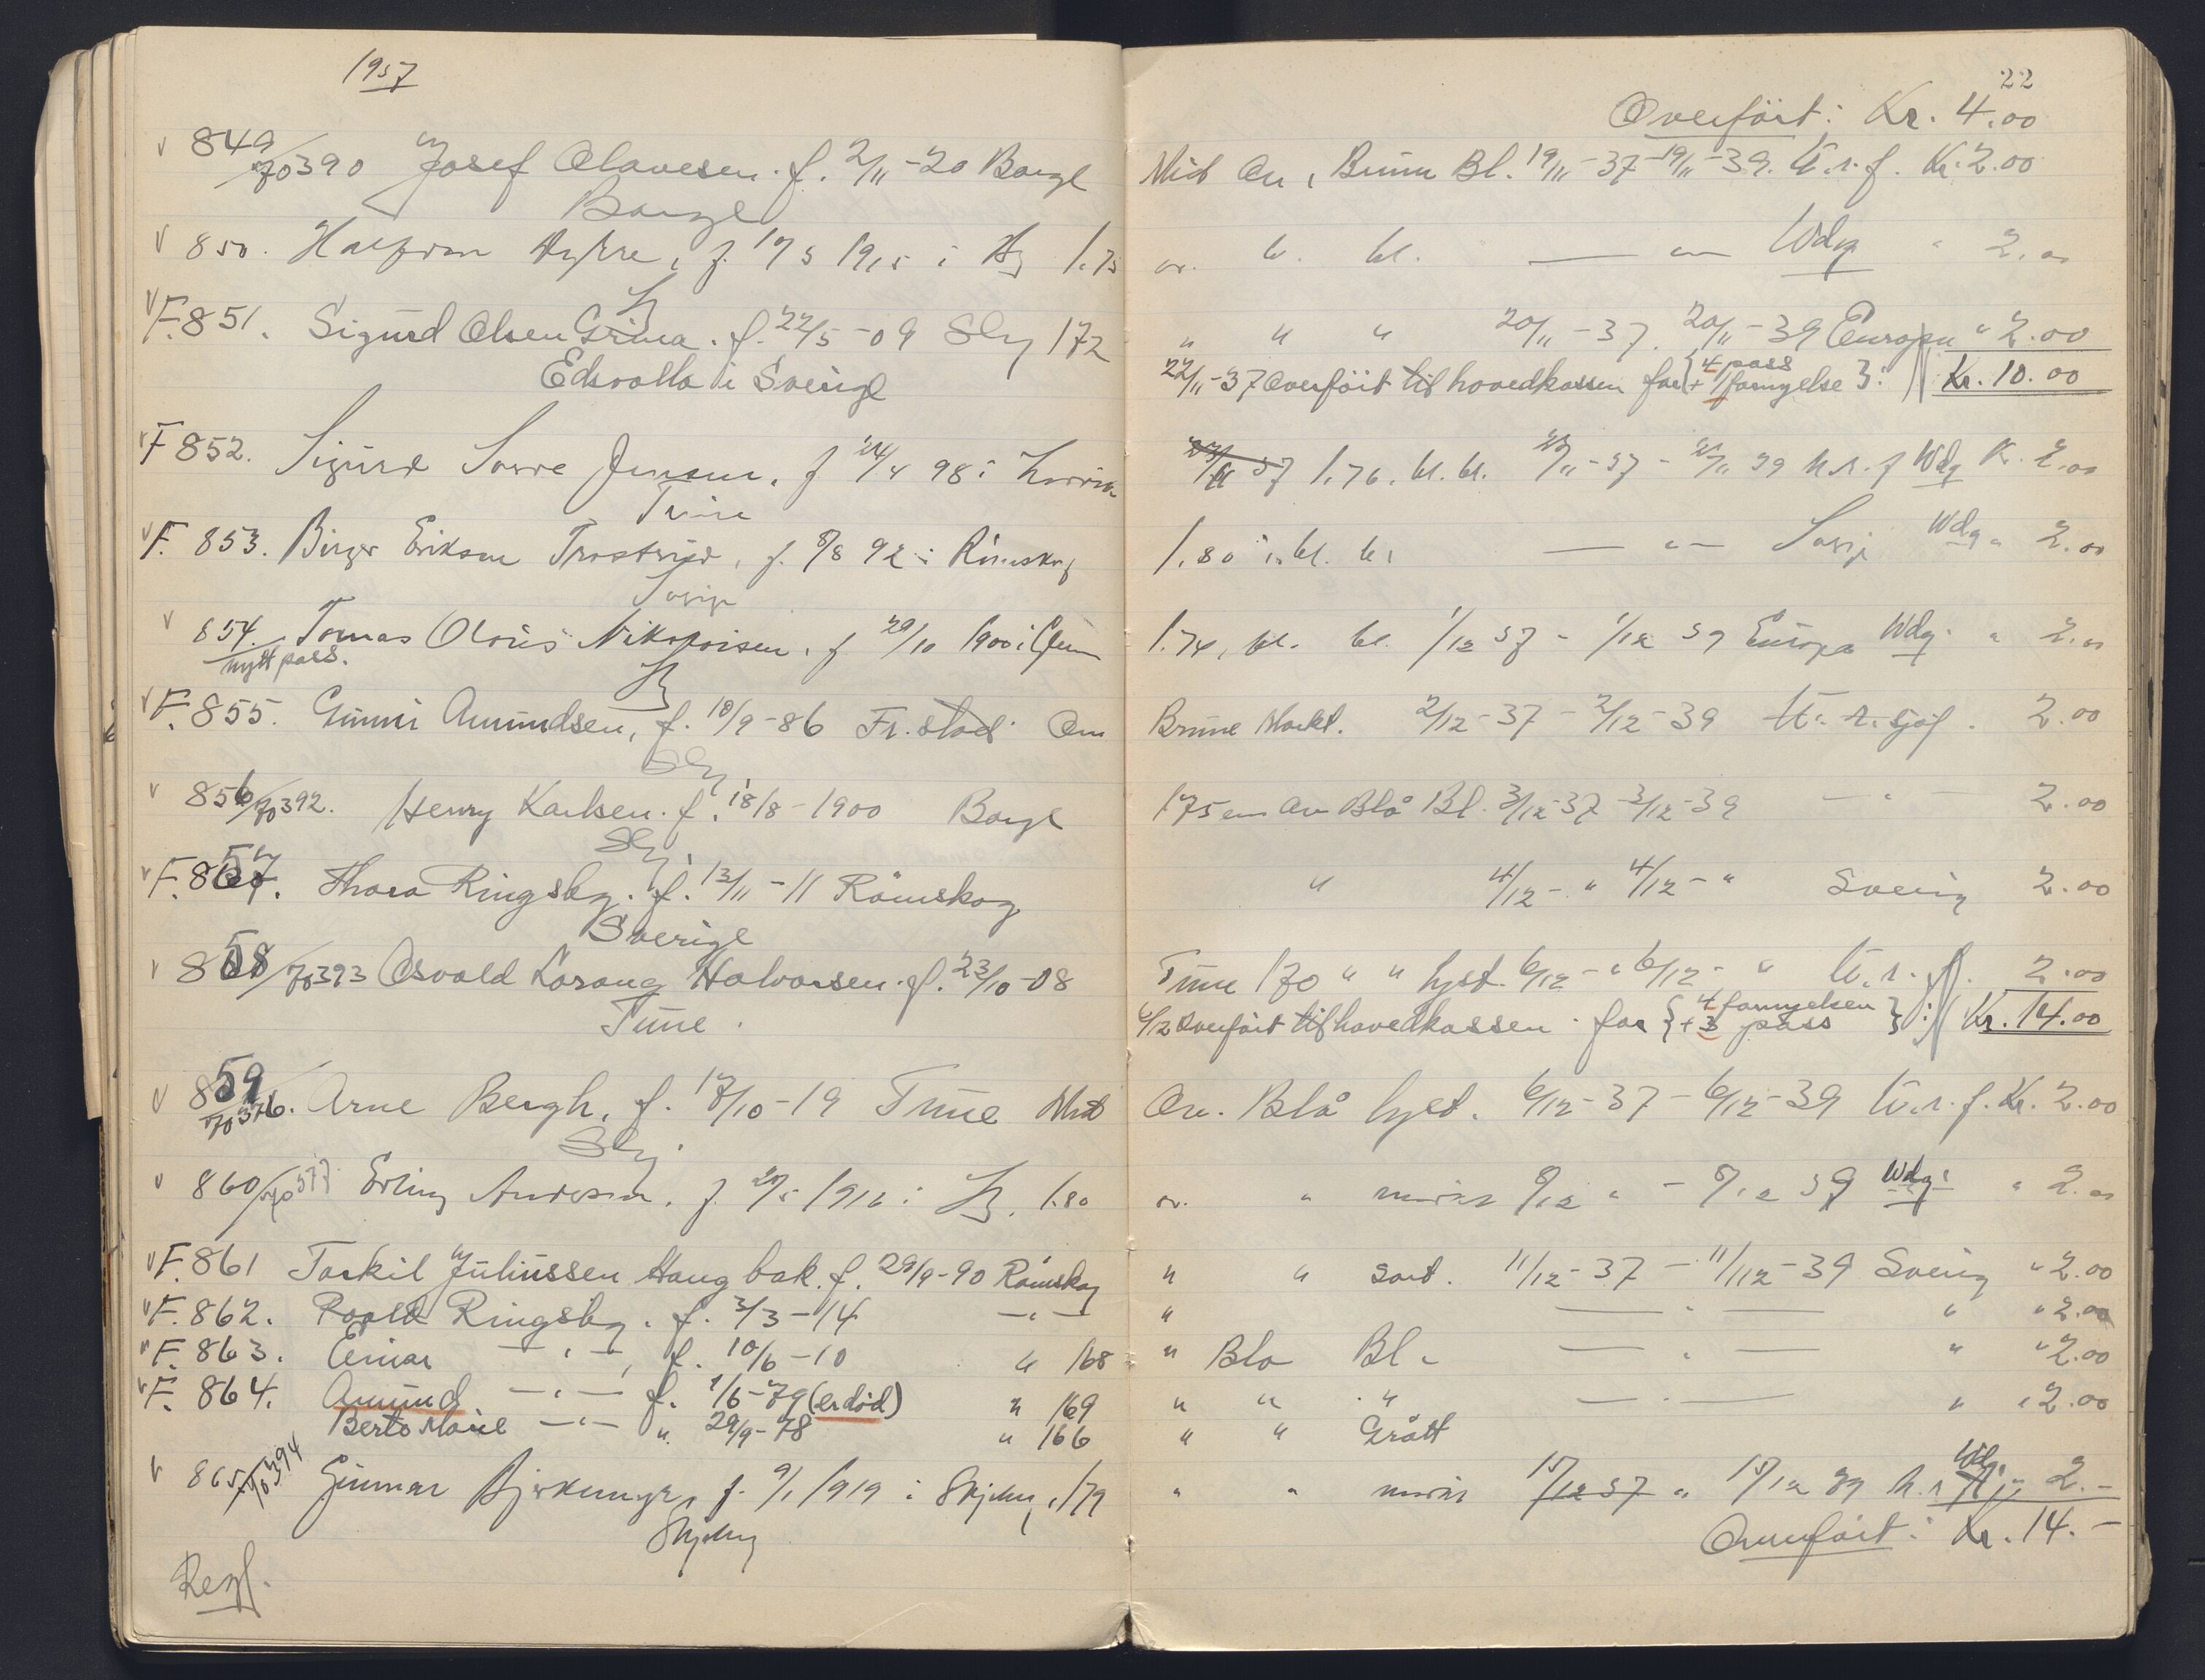 1937
22
Overført: Kr. 4.00
849/70390 Josef Olavesen. f. 2/11-20 Borge
Midt Ov, Brunn Bl. 19/11-37-19/11-39. U.r.f. Kr. 2.00
Borge
850. 1915 i 1.75
ov. bl. bl. — " — Wdg " 2.00
F. 851. Sigurd Olsen f. 22/5-09 Sbg 172
" " " 20/11-37. 20/11-39 Europa " 2.00
i Sverige
22/11-37 Overført til hovedkassen for {4 pass + 1 fornyelse}: Kr. 10.00
F 852. Sigurd Jensen, f 24/4 98 i
37 1.76. bl. bl. /11-37 - /11 39 U.r.f Wdg Kr. 2.00
Tune
F. 853. Birger Eriksen f. 8/8 92 i Römskog
1.80 bl. bl. — " — Sverige Wdg " 2.00
Sverige
854. Tomas f 29/10 1900 i
nytt pass.
1.74, bl. bl. 1/12 37 - 1/12 39 Europa Wdg. " 2.00
F. 855. Gunnar Amundsen, f. 18/9-86 Fr.stad Ov
Brune Mørkt. 2/12-37-2/12-39 U.r. sjøf. 2.00
Sbg
856/70392. Henry Karlsen. f. 18/8-1900 Borge
175 cm Ov Blå Bl. 3/12-37-3/12-39 — " — 2.00
Sbg
F. 857. Thora Ringsby. f. 13/11-11 Römskog
" 4/12- " 4/12- " Sverig 2.00
Sverige
858/70393 Osvald Lorang Halvorsen. f. 23/10-08
Tune 170 " " lyst. 6/12- " 6/12- " U.r.f. 2.00
Tune.
6/12 Overført til hovedkassen for {4 fornyelsen + 3 pass}: Kr. 14.00
859/70376. Arne Bergh, f. 17/10-19 Tune Midt
Ov. Blå lyst. 6/12-37-6/12-39 U.r.f. Kr. 2.00
Sbg.
860/70377 Erling Andersen, f. 1912 i 1.80
ov. " mørkt 8/12 " - 8/12 39 Wdg. " 2.00
F. 861 Torkil Juliussen Haugbak. f. 29/9-90 Römskog
" " Sort. 11/12-37-11/12-39 Sverig " 2.00
F. 862. Roald Ringsby. f. 3/3-14 — " —
" — " — " " 2.00
F. 863. Einar — " —, f. 10/6-10 " 168
" Blå Bl. — " — " " 2.00
F. 864. Amund — " — f. 1/6-79 (er død) " 169
" " " — " — " " 2.00
Berte Marie — " — " 29/9-78 " 166
" " Grått
865/70394 Gunnar f. 9/1 1919 i Skjeberg, 179
" " mørkt 15/12 37 " 15/12 39 U.r. Wdg. 2.-
Skjeberg
Overført: Kr. 14.-
Regf.